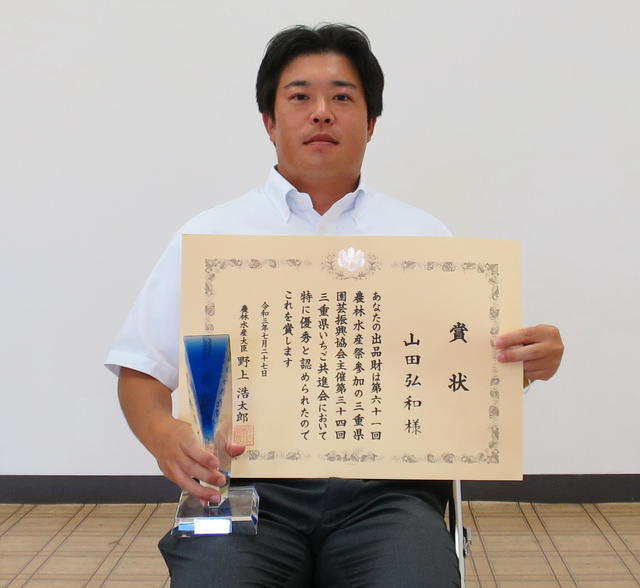 賞状
山田弘和様
あなたの出品財は第六十一回
農林水産祭参加の三重県
園芸振興協会主催第三十四回
三重県いちご共進会において
特に優秀と認められたので
これを賞します
令和三年七月二十七日
農林水産大臣 野上浩太郎